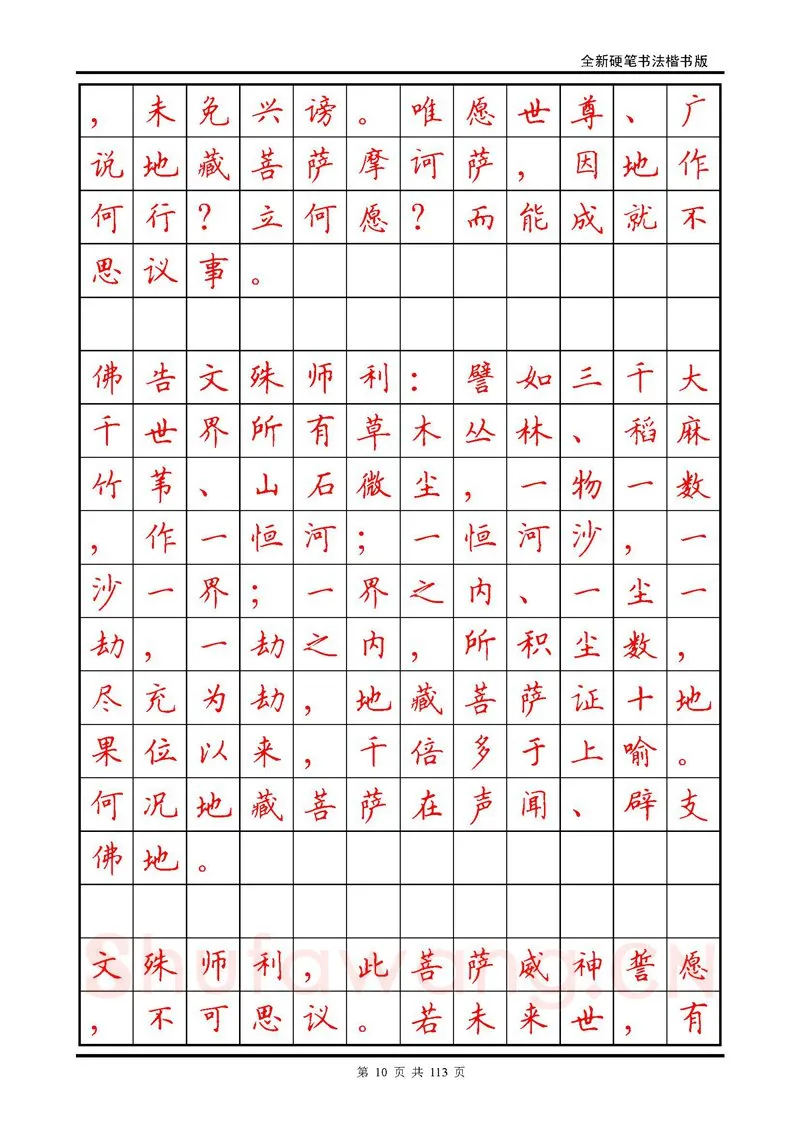 全新硬笔书法楷书版
，未免兴谤。唯愿世尊、广
说地藏菩萨摩诃萨，因地作
何行？立何愿？而能成就不
思议事。
佛告文殊师利：譬如三千大
千世界所有草木丛林、稻麻
竹苇、山石微尘，一物一数
，作一恒河；一恒河沙，一
沙一界；一界之内、一尘一
劫，一劫之内，所积尘数，
尽充为劫，地藏菩萨证十地
果位以来，千倍多于上喻。
何况地藏菩萨在声闻、辟支
佛地。
文殊师利，此菩萨威神誓愿
，不可思议。若未来世，有
Shufawang.CN
第 10 页 共 113 页